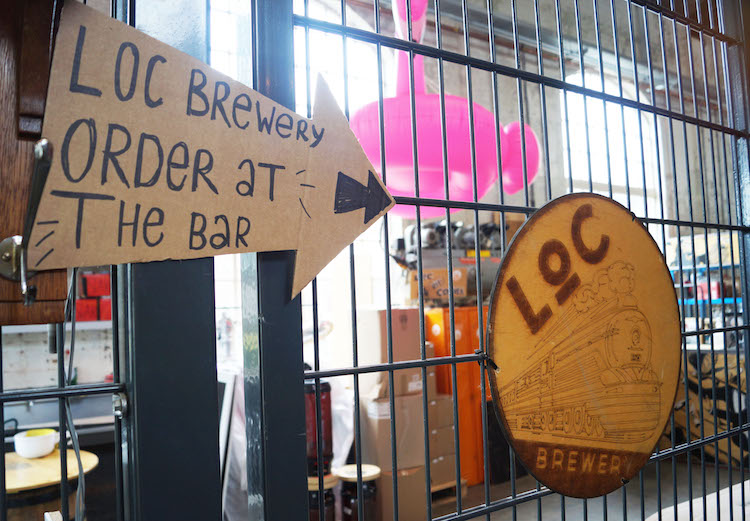 LOC BREWERY
ORDER AT
THE BAR
LOC
BREWERY